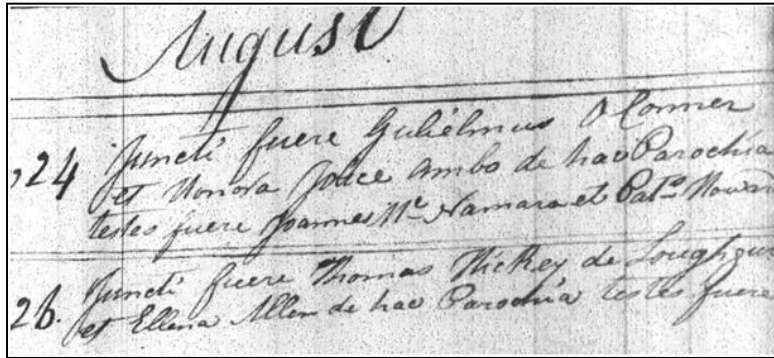 August
24 Juncti fuere Gulielmus O Conner
et Honora Joice ambo de hac Parochia
testes fuere Joannes Mc Namara et Pat.
26. Juncti fuere Thomas Hickey de
et Ellena Allen de hac Parochia testes fuere